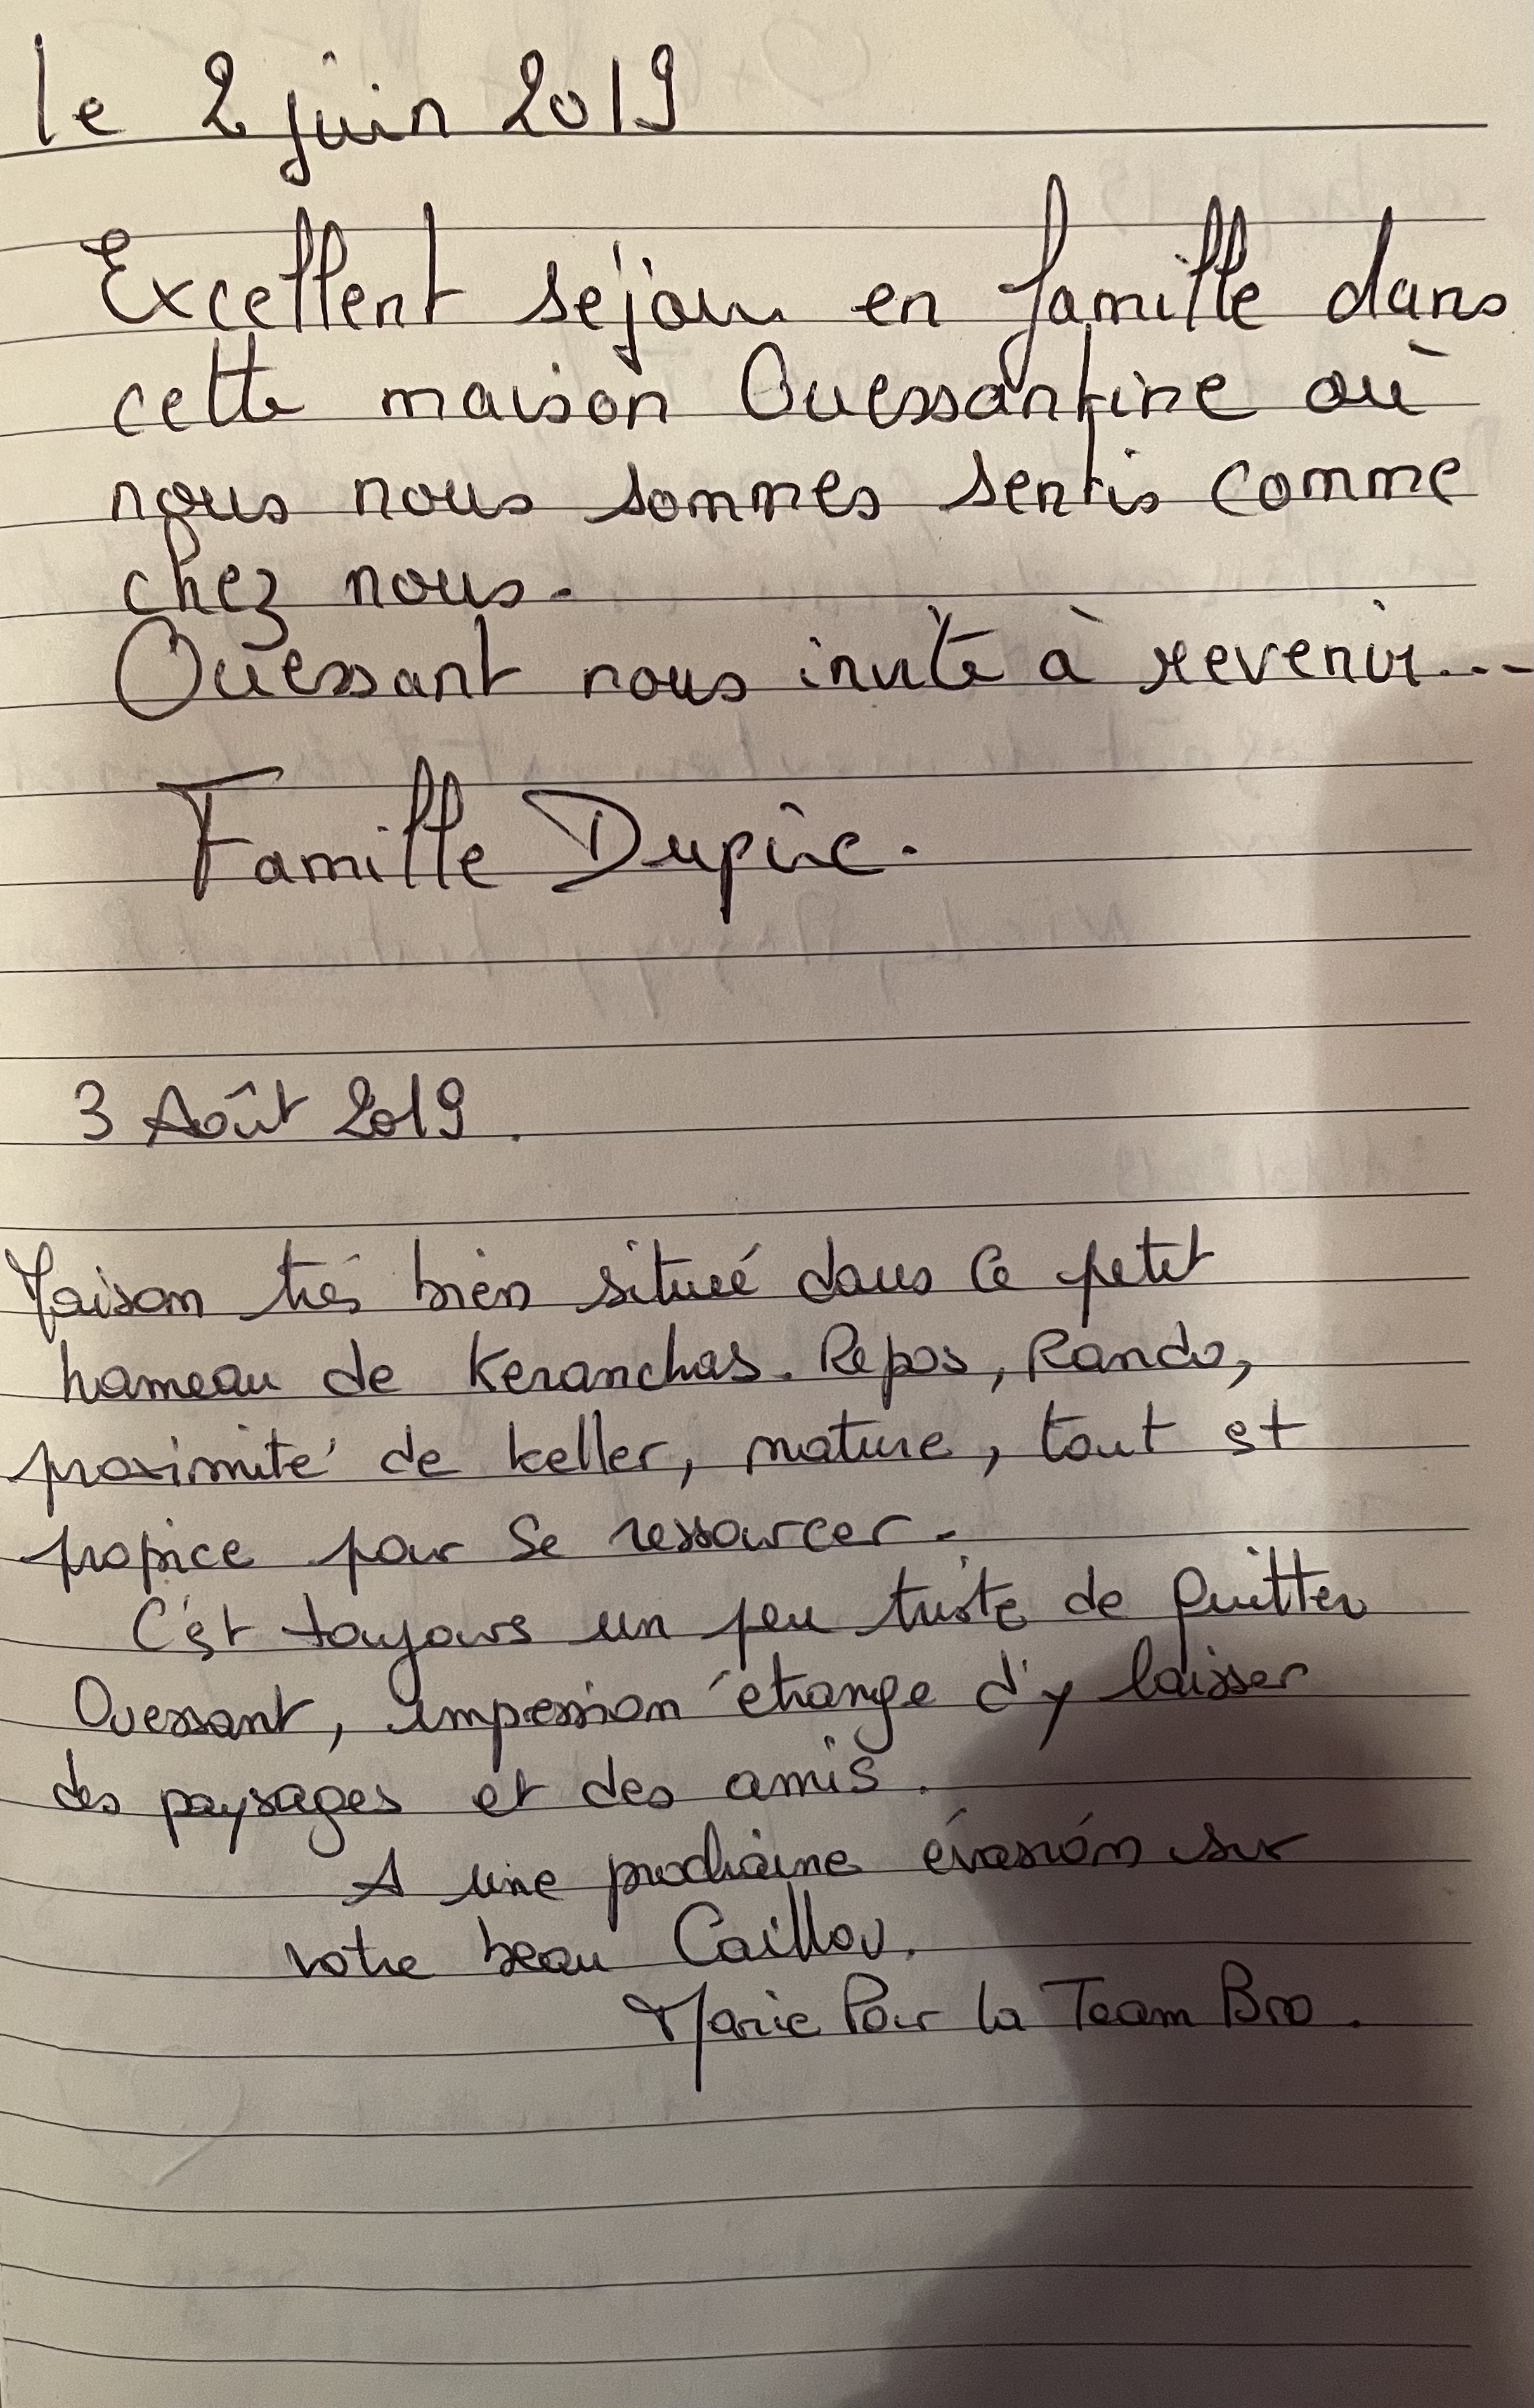 le 2 juin 2019
Excellent séjour en famille dans
cette maison Ouessantine où
nous nous sommes sentis comme
chez nous.
Ouessant nous invite à revenir...
Famille Dupire.
3 Août 2019.
Maison très bien situé dans ce petit
hameau de Keranchas. Repos, Rando,
proximité de Keller, nature, tout est
propice pour se ressourcer.
C'est toujours un peu triste de quitter
Ouessant, impression étrange d'y laisser
des paysages et des amis.
A une prochaine évasion sur
votre beau Caillou.
Marie Pour la Team Bro.